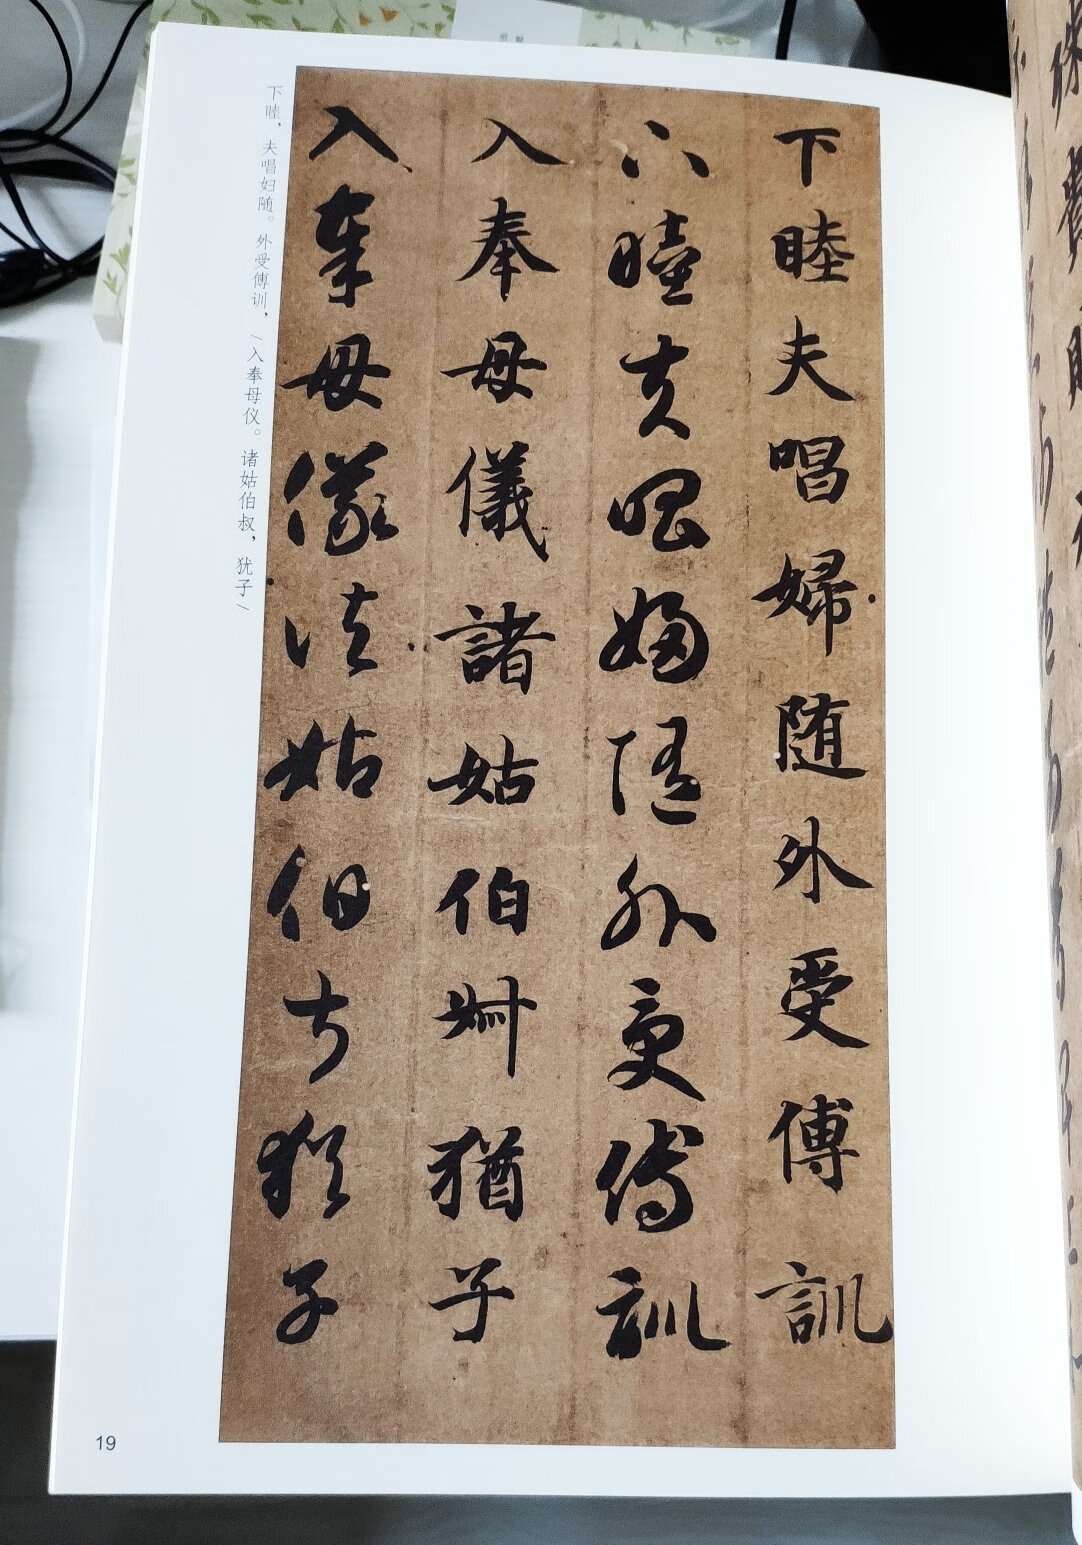 下睦夫唱婦随外受傅訓
下睦夫唱婦随外受傅訓
入奉母儀諸姑伯叔猶子
入奉母儀諸姑伯叔猶子
下睦，夫唱妇随。外受傅训，\入奉母仪。诸姑伯叔，犹子\
19